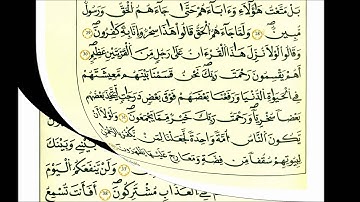 بَلْ مَتَّعْتُ هَٰٓؤُلَآءِ وَءَابَآءَهُمْ حَتَّىٰ جَآءَهُمُ ٱلْحَقُّ وَرَسُولٌ
مُّبِينٌ ۝ وَلَمَّا جَآءَهُمُ ٱلْحَقُّ قَالُوا۟ هَٰذَا سِحْرٌ وَإِنَّا بِهِۦ كَٰفِرُونَ ۝
وَقَالُوا۟ لَوْلَا نُزِّلَ هَٰذَا ٱلْقُرْءَانُ عَلَىٰ رَجُلٍ مِّنَ ٱلْقَرْيَتَيْنِ عَظِيمٍ ۝
أَهُمْ يَقْسِمُونَ رَحْمَتَ رَبِّكَ نَحْنُ قَسَمْنَا بَيْنَهُم مَّعِيشَتَهُمْ
فِى ٱلْحَيَوٰةِ ٱلدُّنْيَا وَرَفَعْنَا بَعْضَهُمْ فَوْقَ بَعْضٍ دَرَجَٰتٍ لِّيَتَّخِذَ بَعْضُهُم
بَعْضًا سُخْرِيًّا وَرَحْمَتُ رَبِّكَ خَيْرٌ مِّمَّا يَجْمَعُونَ ۝ وَلَوْلَآ أَن
يَكُونَ ٱلنَّاسُ أُمَّةً وَٰحِدَةً لَّجَعَلْنَا لِمَن يَكْفُرُ
لِبُيُوتِهِمْ سُقُفًا مِّن فِضَّةٍ وَمَعَارِجَ عَلَيْهَا بَيْنِى وَبَيْنَكَ
وَلَن يَنفَعَكُمُ ٱلْيَوْمَ
فِى ٱلْعَذَابِ مُشْتَرِكُونَ ۝ أَفَأَنتَ تُسْمِعُ